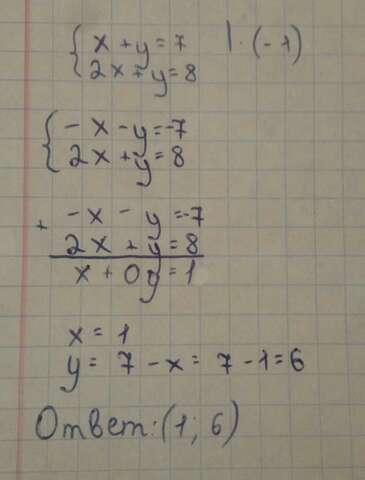 { x + y = 7 | · (-1)
2x + y = 8
{ -x - y = -7
2x + y = 8
+ -x - y = -7
2x + y = 8
x + 0y = 1
x = 1
y = 7 - x = 7 - 1 = 6
Ответ: (1; 6)